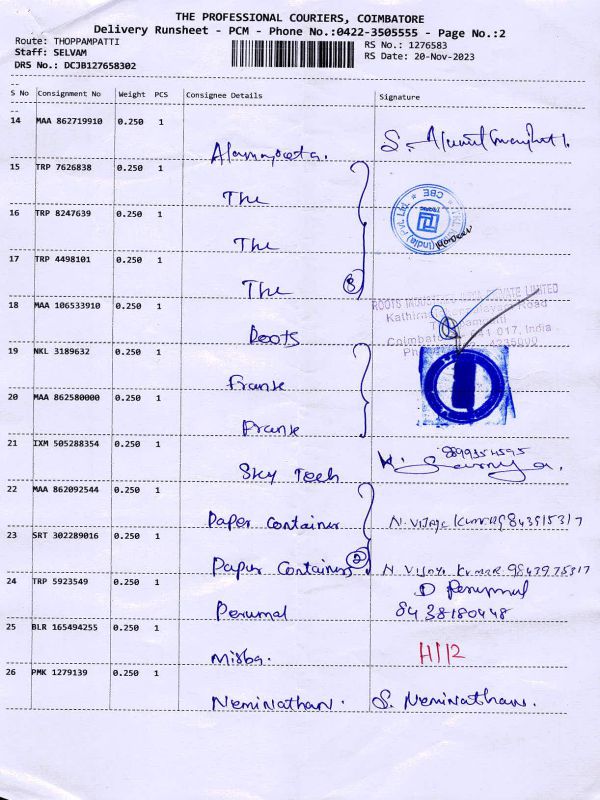 THE PROFESSIONAL COURIERS, COIMBATORE
Delivery Runsheet - PCM - Phone No.:0422-3505555 - Page No.:2
Route: THOPPAMPATTI
RS No.: 1276583
Staff: SELVAM
RS Date: 20-Nov-2023
DRS No.: DCJB127658302
S No Consignment No Weight PCS Consignee Details Signature
14 MAA 862719910 0.250 1
S.
15 TRP 7626838 0.250 1
The
CBE
(India) Pvt Ltd.
16 TRP 8247639 0.250 1
The
17 TRP 4498101 0.250 1
The 3
ROOTS PRIVATE LIMITED
18 MAA 106533910 0.250 1
Road
Roots
Coimbatore 641 017, India
19 NKL 3189632 0.250 1
Franke
20 MAA 862580000 0.250 1
Franke
21 IXM 505288354 0.250 1
Sky Tech
22 MAA 862092544 0.250 1
Paper Container N. VIJAYA KUMAR
23 SRT 302289016 0.250 1
Paper Containers 2 N VIJAYA KUMAR
24 TRP 5923549 0.250 1
D Perumal
Perumal 8438180448
25 BLR 165494255 0.250 1
Misba.
26 PMK 1279139 0.250 1
Neminathan. S. Neminathan.